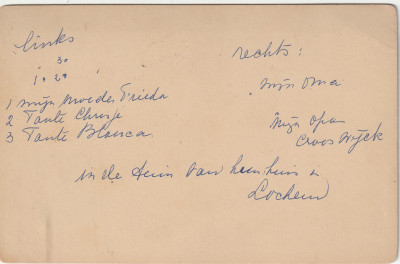 links
30
10 20
1 mijn moeder, Frieda
2 Tante Chrisje
3 Tante Blanca
rechts:
mijn Oma
Mijn Opa
Croos Wijck
in de tuin van hun huis in
Lochem